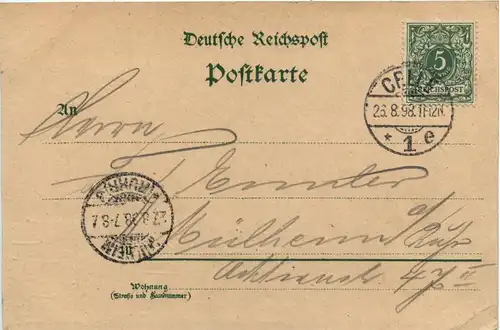 Deutsche Reichspost
Postkarte
5
REICHSPOST
CELLE
26.8.98.11-12N.
* 1 e
An
Herrn
Mülheim a/Ruhr
Actienstr. 47 II
Wohnung
(Straße und Hausnummer)